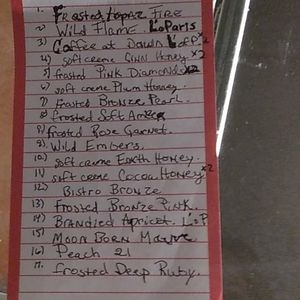 1. Frosted Topaz Fire
2) Wild Flame LoParis
3) Coffee at Dawn L'oP x2
4) soft creme CINN Honey x2
5) frosted Pink Diamond x2
6) soft creme Plum Honey.
7) frosted Bronze Pearl.
8) frosted Soft Amber
9) frosted Rose Garnet.
9) Wild Embers.
10) soft creme Earth Honey.
11) soft creme Cocoa Honey x2
12) Bistro Bronze
13) Frosted Bronze Pink.
14) Brandied Apricot L'oP
15) Moon Born Mauve
16) Peach 21
17. frosted Deep Ruby.